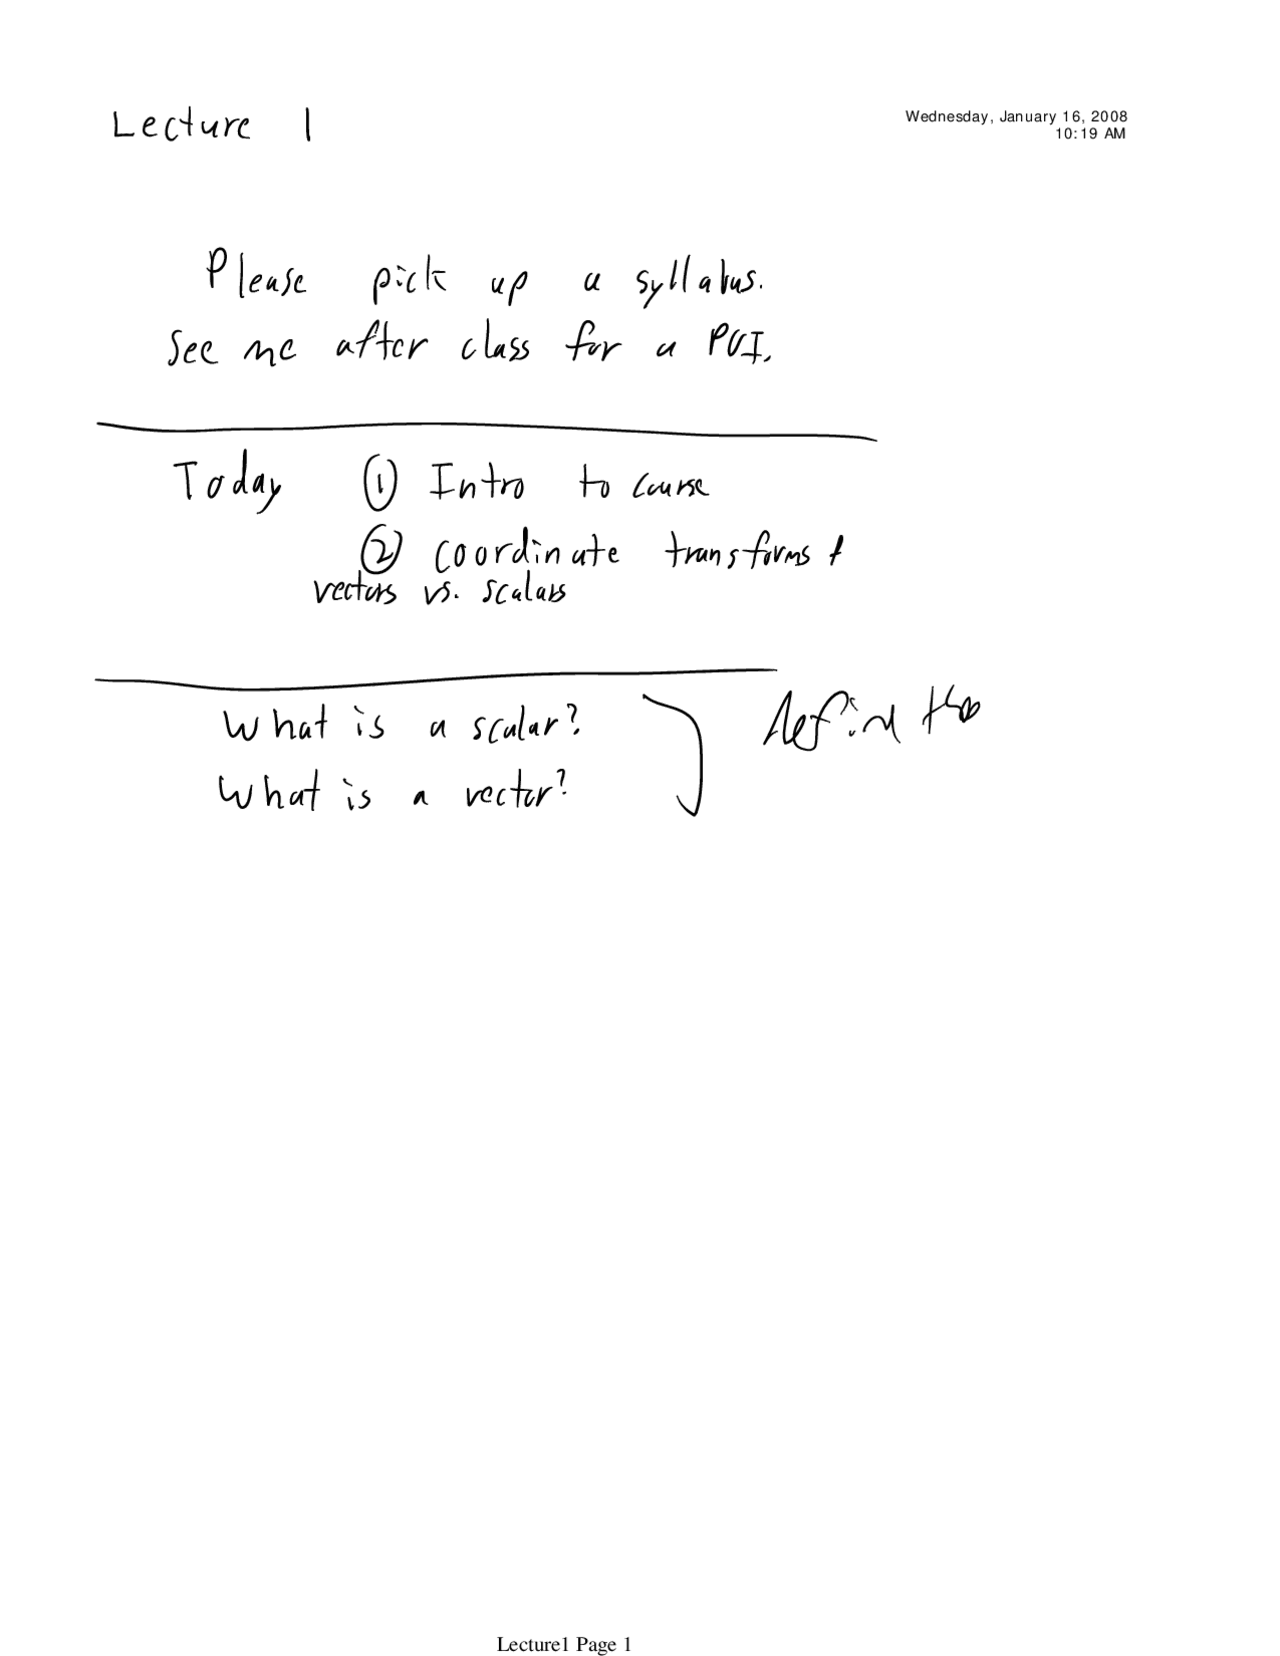 Lecture 1
Wednesday, January 16, 2008
10:19 AM
Please pick up a syllabus.
See me after class for a PCI.
Today ① Intro to course
② coordinate transforms +
vectors vs. scalars
What is a scalar?
What is a vector?
define
Lecture1 Page 1